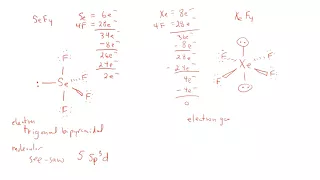 SeF4
Se = 6e-
4F = 28e-
34e-
-8e-
26e-
-24e-
2e-
Xe = 8e-
4F = 28e-
36e-
-8e-
28e-
-24e-
4e-
-4e-
0
XeF4
F
F
: Se
F
F
F
F
Xe
F
F
electron
trigonal bipyramidal
molecular
see-saw 5 sp3d
electron geo